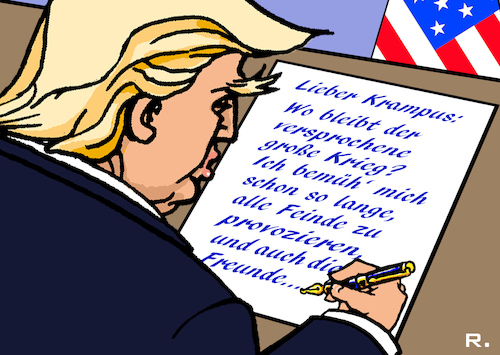 Lieber Krampus:
Wo bleibt der
versprochene
große Krieg?
Ich bemüh' mich
schon so lange,
alle Feinde zu
provozieren
und auch die
Freunde...
R.